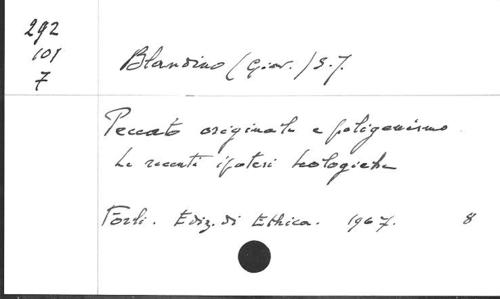 292
101
7
Blandino (Giov.) S.J.
Peccato originale e poligenismo
Le recenti ipotesi teologiche
Forlì. Ediz. di Ethica. 1967. 8